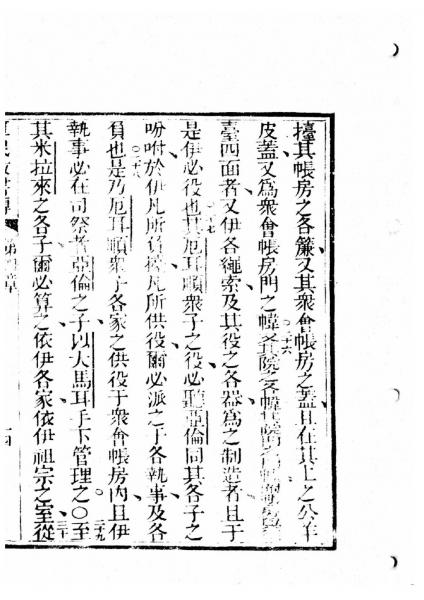 擡其帳房之各簾又其衆會帳房之蓋且在其上之公羊
皮蓋又爲衆會帳房門之幃二十六其院各幃
臺四面者又伊各繩索及其役之各器爲之制造者且于
是伊必役也其厄耳順衆子之役必聽亞倫同其各子之
吩咐於伊凡所負擡凡所供役爾必派之于各執事及各
負也是乃厄耳順衆子各家之供役于衆會帳房內且伊
執事必在司祭者亞倫之子以大馬耳手下管理之〇至二十九
其米拉來之各子爾必算之依伊各家依伊祖宗之室從三十
第四章